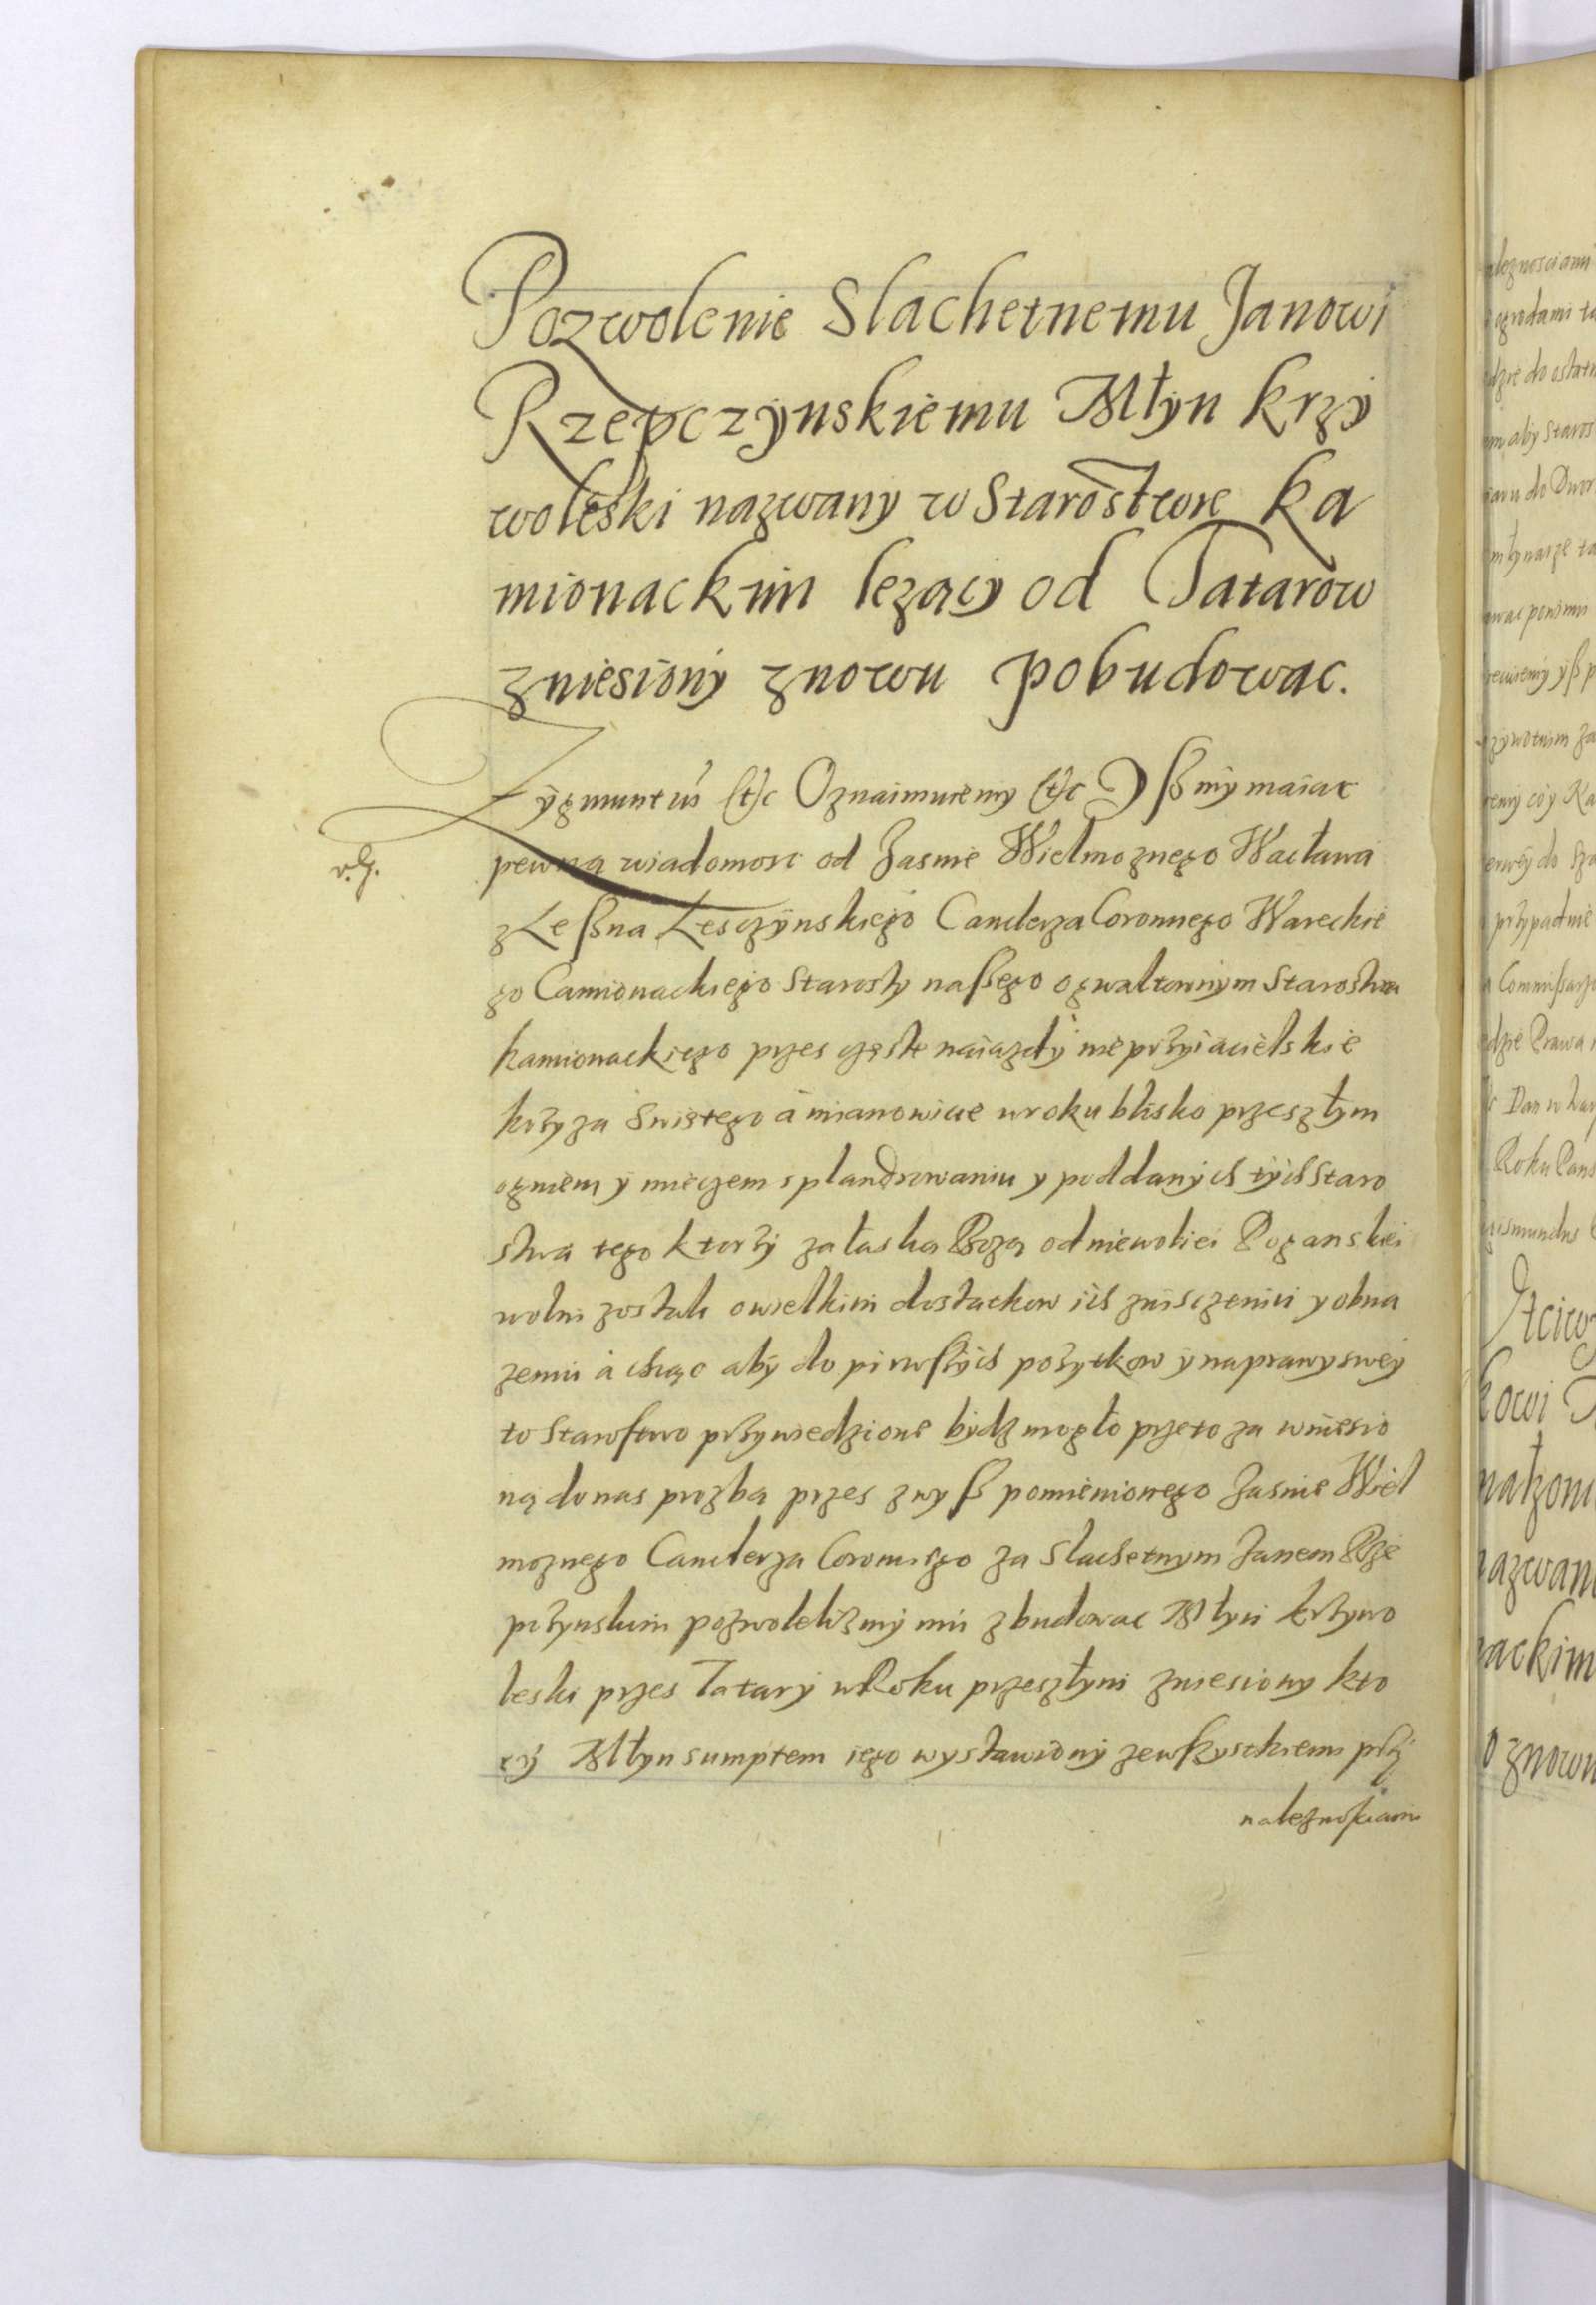 Pozwolenie Slachetnemu Janowi
Rzepczynskiemu Młyn krzy
woleski nazwany w Starostwie Ka
mionackim lezący od Tatarow
zniesiony znowu pobudowac.
Zygmuntus (t)c Oznaimuiemy (t)c Yß my maiac
pewną wiadomosc od Jasnie Wielmoznego Wacława
z Leßna Lesczynskiego Canclerza Coronnego Wareckie
go Camionackiego Starosty naßego o gwałtownym Starostwa
kamionackiego przes częste naiazdy nieprzyiacielskie
krzyza Swiętego a mianowicie w roku blisko przeszłym
ogniem y mieczem splandrowaniu y poddanych tych Staro
stwa tego ktorzy za łaska Bozą od niewoliei Poganskiei
wolni zostali o wielkim dostatkow ich zniszczeniu y obna
zeniu a chcąc aby do pirwßych pozytkow y naprawy swey
to Starostwo przywiedzione bydz mogło przeto za wniesio
ną do nas prozba przes zwyß pomienionego Jasnie Wiel
moznego Canclerza Coronnego za Slachetnym Janem Rze
pczynskim pozwolilismy mu zbudowac Młyn krzywo
leski przes Tatary w Roku przeszłym zniesiony kto
ry Młyn sumptem iego wystawiony ze wßystkiemi przy
naleznosciami
v. g.
aleznosciami
ogrodami ta
dzie do ostatn
aby Staros
do Dwor
młynarze ta
zywotnim za
przypadnie
Commißarz
dzie Prawa
Roku Pans
gismundus
kowi
nazwan
nackim
o znowu